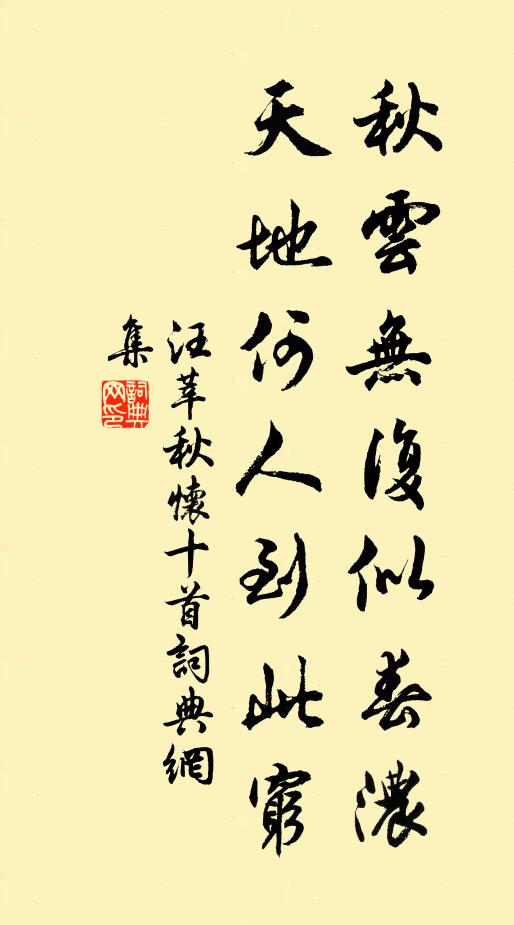 秋雲無復似春濃
天地何人到此窮
汪莘秋懷十首詞典網
集
詞典網印